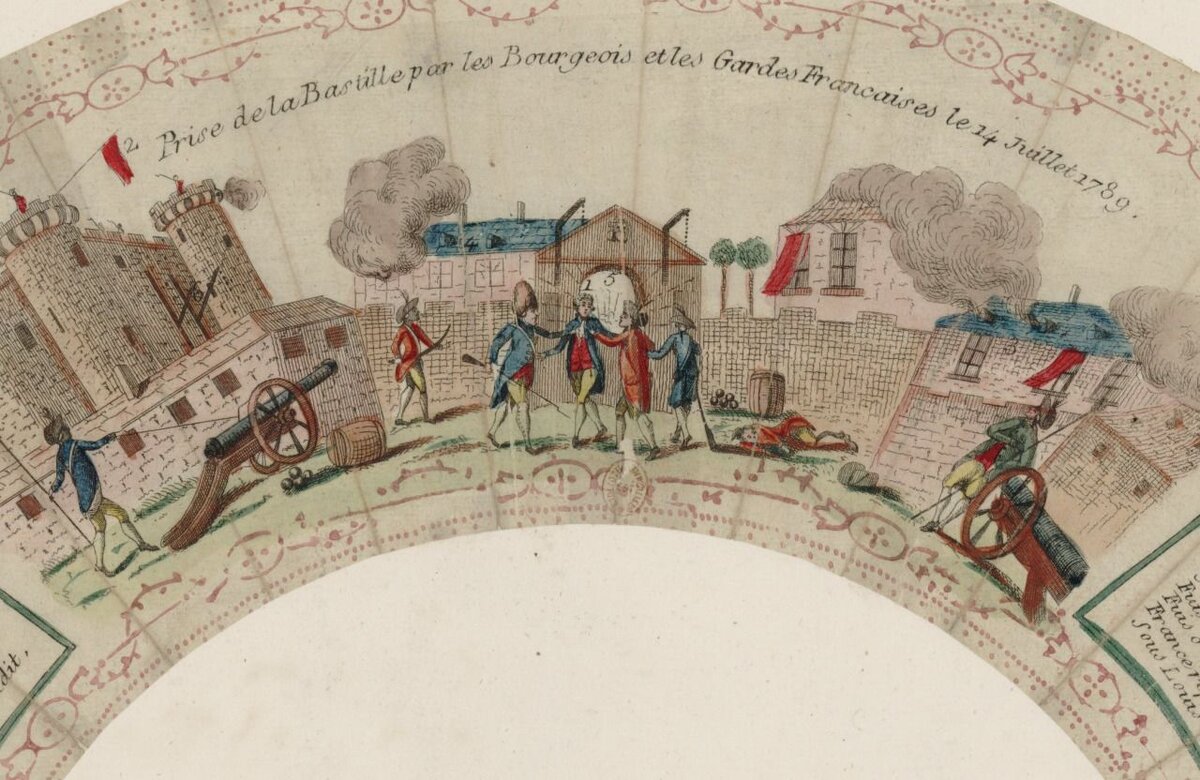 2 Prise de la Bastille par les Bourgeois et les Gardes Francaises le 14 Juillet 1789.
2
4
1
5
3
dit,
France
sous Louis